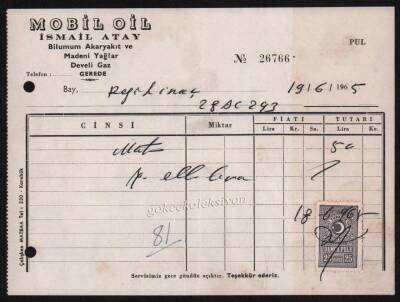 MOBİL OİL
İSMAİL ATAY
Bilumum Akaryakıt ve
Madeni Yağlar
Develi Gaz
Telefon : GEREDE
№ 26766
PUL
Bay,
28 AC 293
19/6/1965
CİNSİ
Miktar
FİATI
TUTARI
Lira Kr. Sa. Lira Kr.
50
elli lira
gokcekoleksiyon
18.6.965
81
25 25
Servisimiz gece gündüz açıktır. Teşekkür ederiz.
Çalışkan MATBAA Tel : 220 - Karabük